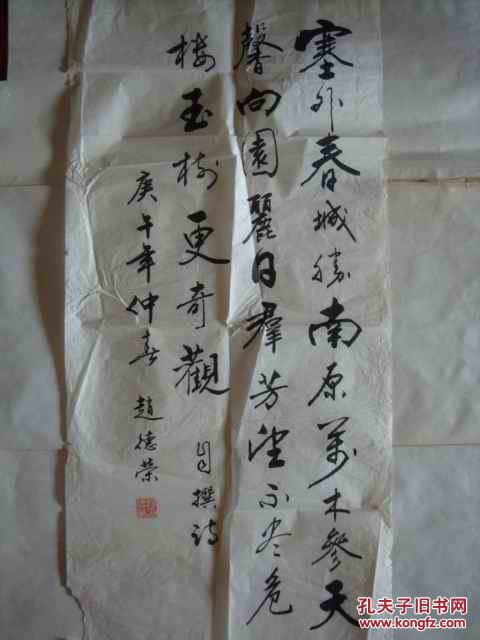 塞外春城勝南原萬木參天
馨向園麗日羣芳望不尽危
楼玉樹更奇觀 自撰诗
庚午年仲春 趙德荣
孔夫子旧书网
www.kongfz.com